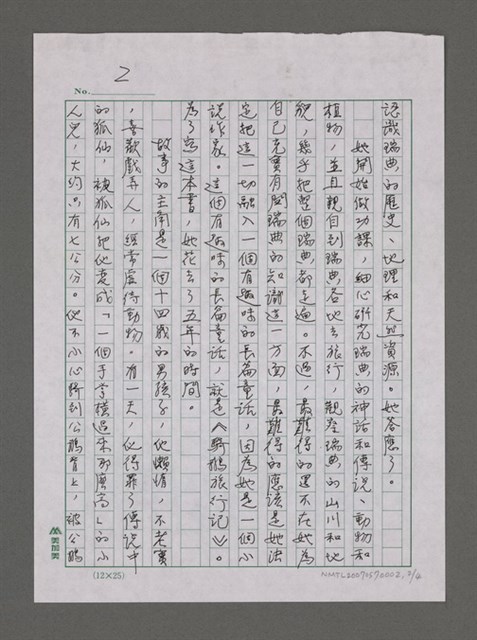 2
No.
認識瑞典的歷史、地理和天然資源。她答應了。
她開始做功課，細心研究瑞典的神話和傳說、動物和
植物，並且親自到瑞典各地去旅行，觀察瑞典的山川和地
貌，幾乎把整個瑞典都走遍。不過，最難得的還不在她為
自己充實有關瑞典的知識這一方面，最難得的應該是她決
定把這一切融入一個有趣味的長篇童話，因為她是一個小
說作家。這個有趣味的長篇童話，就是《騎鵝旅行記》。
為了寫這本書，她花去了五年的時間。
故事的主角是一個十四歲的男孩子，他懶惰，不老實
，喜歡戲弄人，經常虐待動物。有一天，他得罪了傳說中
的狐仙，被狐仙把他變成「一個手掌橫過來那麼高」的小
人兒，大約只有七公分。他不小心騎到公鵝背上，被公鵝
(12×25)
美加美
NMTL20070570002.2/2